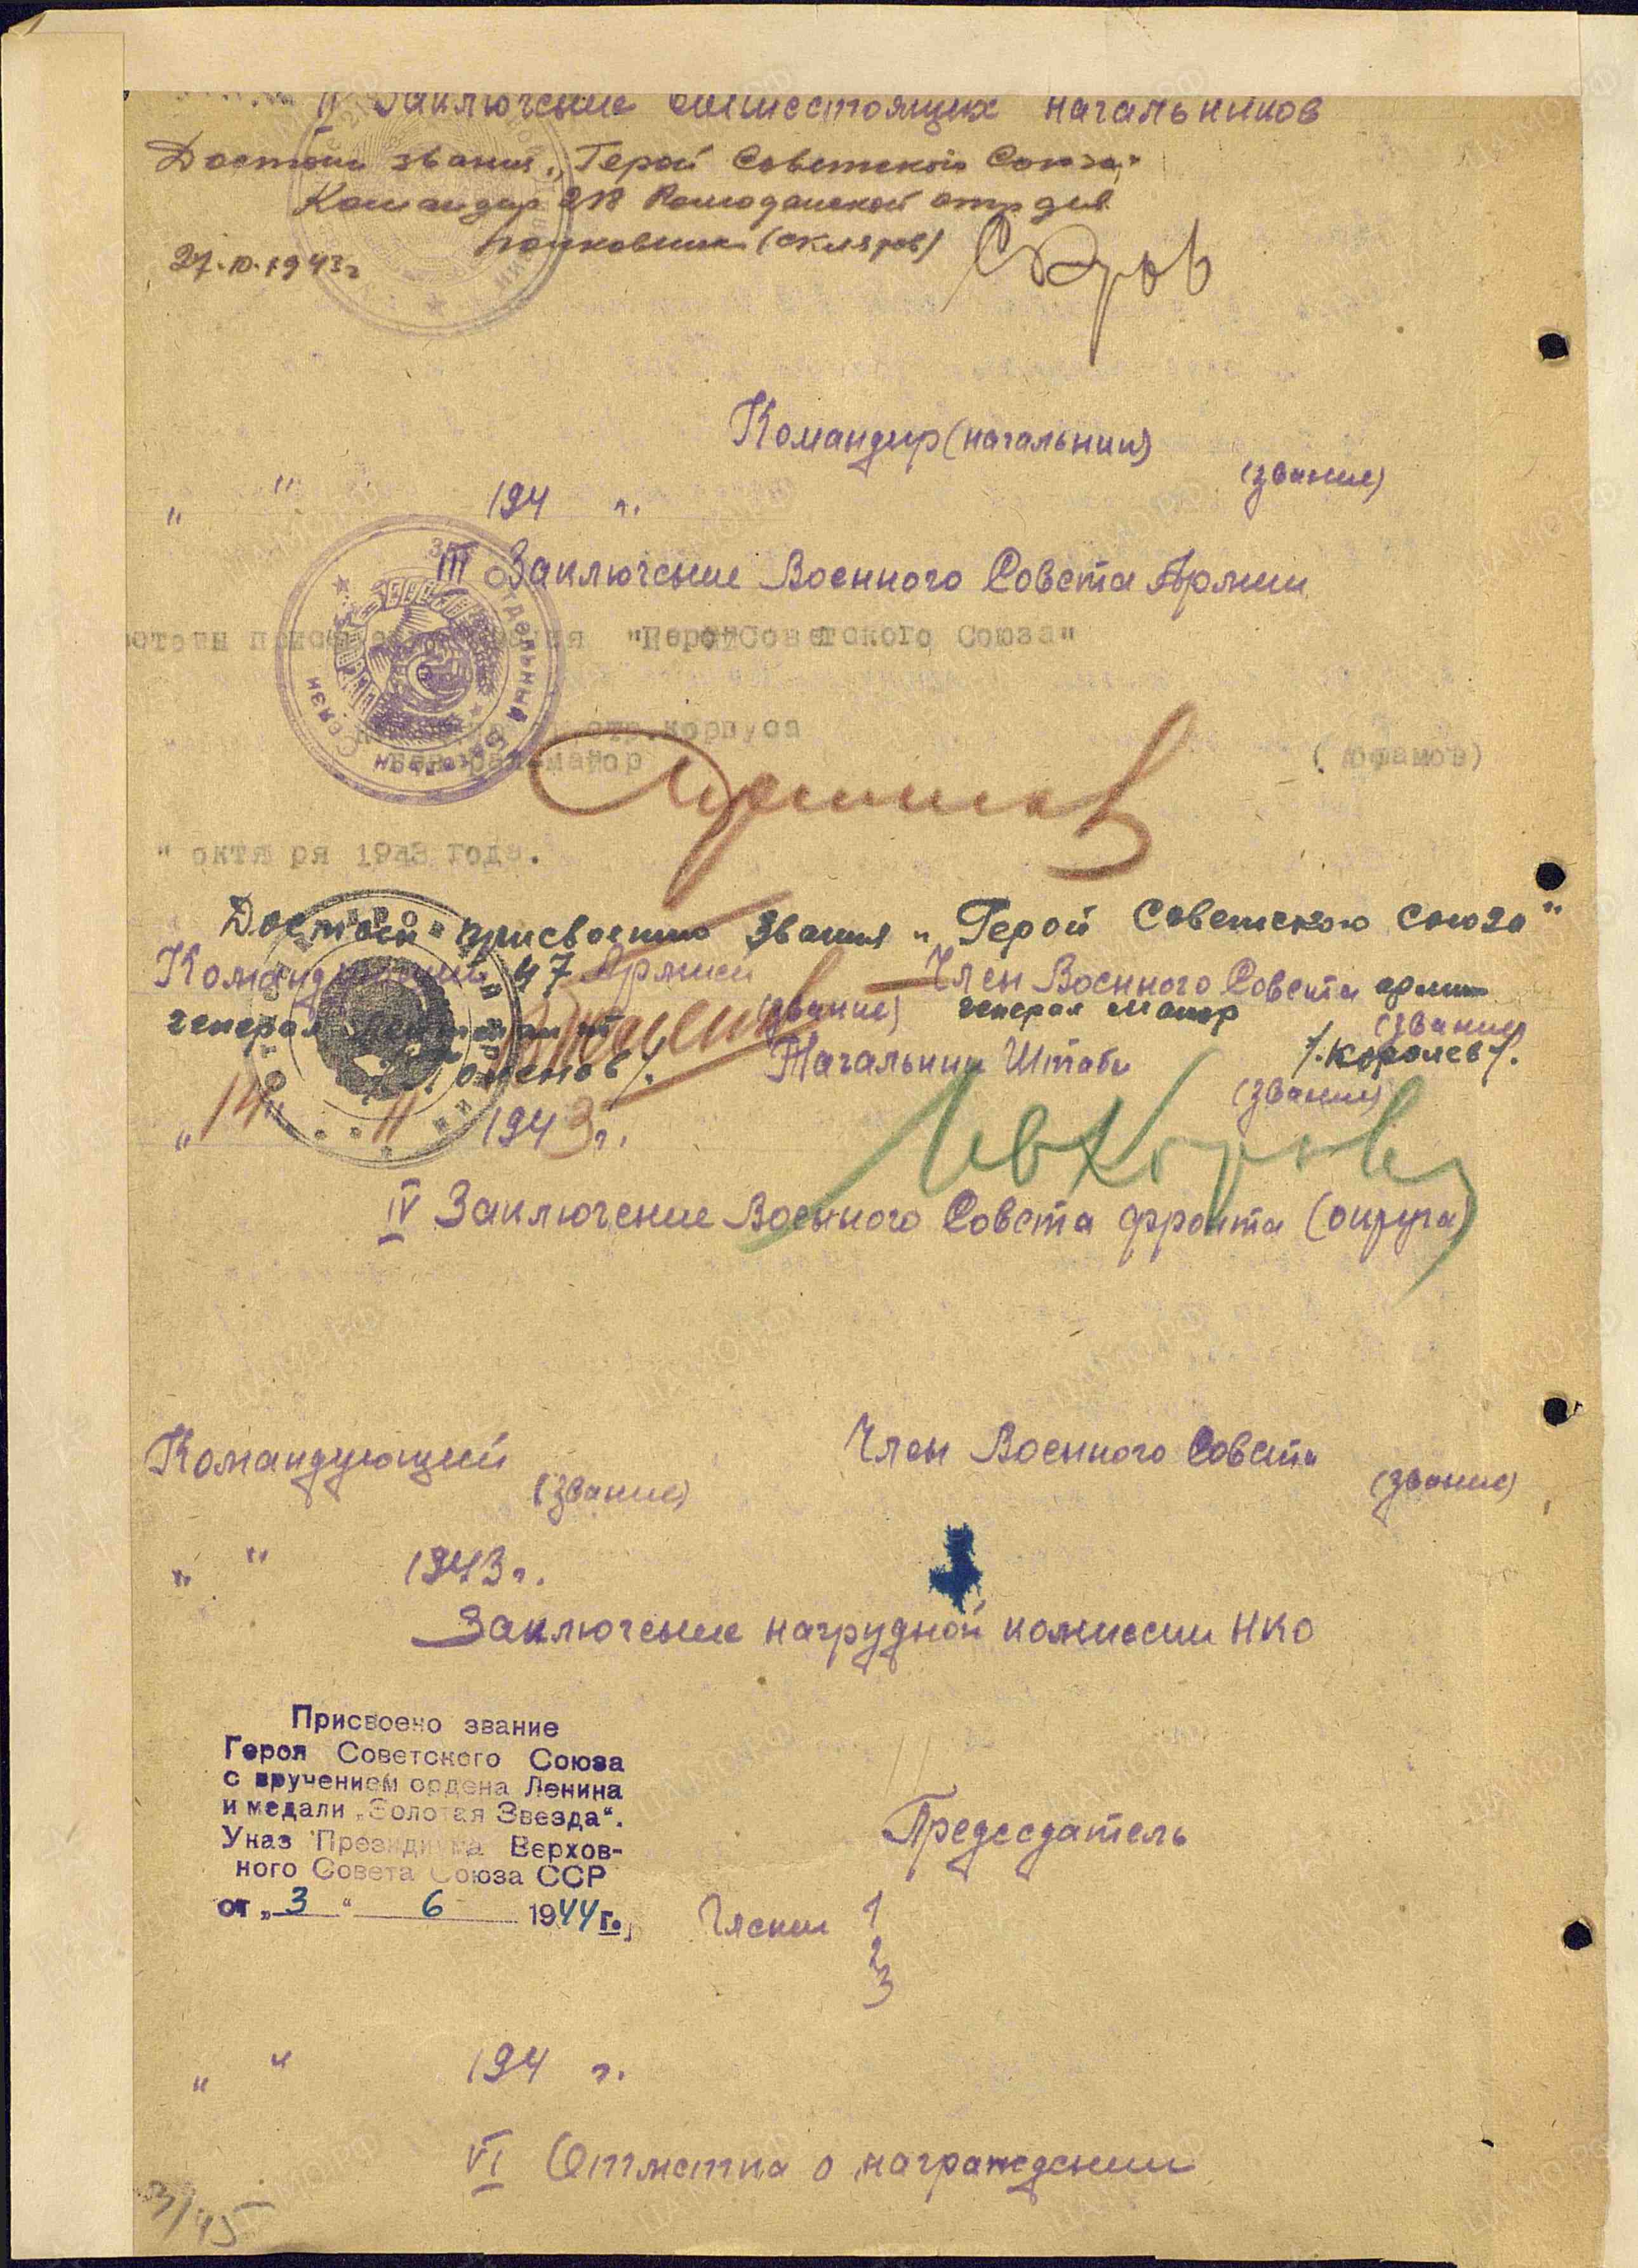 II Заключение вышестоящих начальников
Достоин звания „Герой Советской Союза"
Командир 218 Ромоданской стр див
полковник (Скляров)
27.10.1943г
Командир (начальник)
(звание)
" " 194 г.
III Заключение Военного Совета Армии
"Герой Советского Союза"
стр.корпуса
генерал-майор
" октября 1943 года.
Достоин присвоению звания „Герой Советского Союза"
Командующий 47 Армией
Член Военного Совета армии
(звание)
генерал лейтенант
генерал майор
(звание)
/.Королев/.
Начальник Штаба
(звание)
"14" 11 1943 г.
IV Заключение Военного Совета фронта (округа)
Командующий
Член Военного Совета
(звание)
(звание)
" " 1943 г.
Заключение наградной комиссии НКО
Присвоено звание
Героя Советского Союза
с вручением ордена Ленина
и медали „Золотая Звезда".
Указ Президиума Верхов-
ного Совета Союза ССР
от „3" 6 1944 г.
Председатель
Члены 1
2
3
" " 194 г.
VI Отметка о награждении
3/45